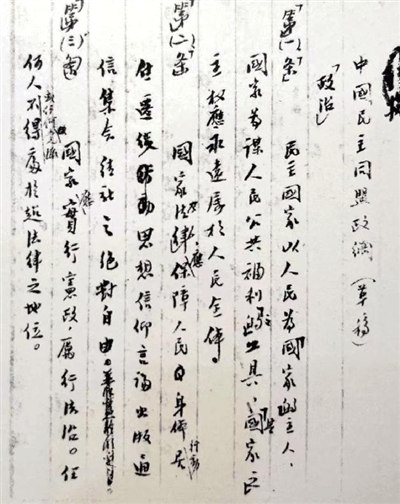 中國民主同盟政綱（草稿）
「政治」
「第(一)条」 民主國家以人民爲國家的主人、
國家爲謀人民公共福利的工具、國家之
主权應永遠属於人民全体。
第(二)条 國家法律應保障人民身体行動居
住遷徙思想信仰言論出版通
信集会结社之绝對自由。
第(三)条 國家應實行憲政，厲行法治。任
何人不得處於超法律之地位。